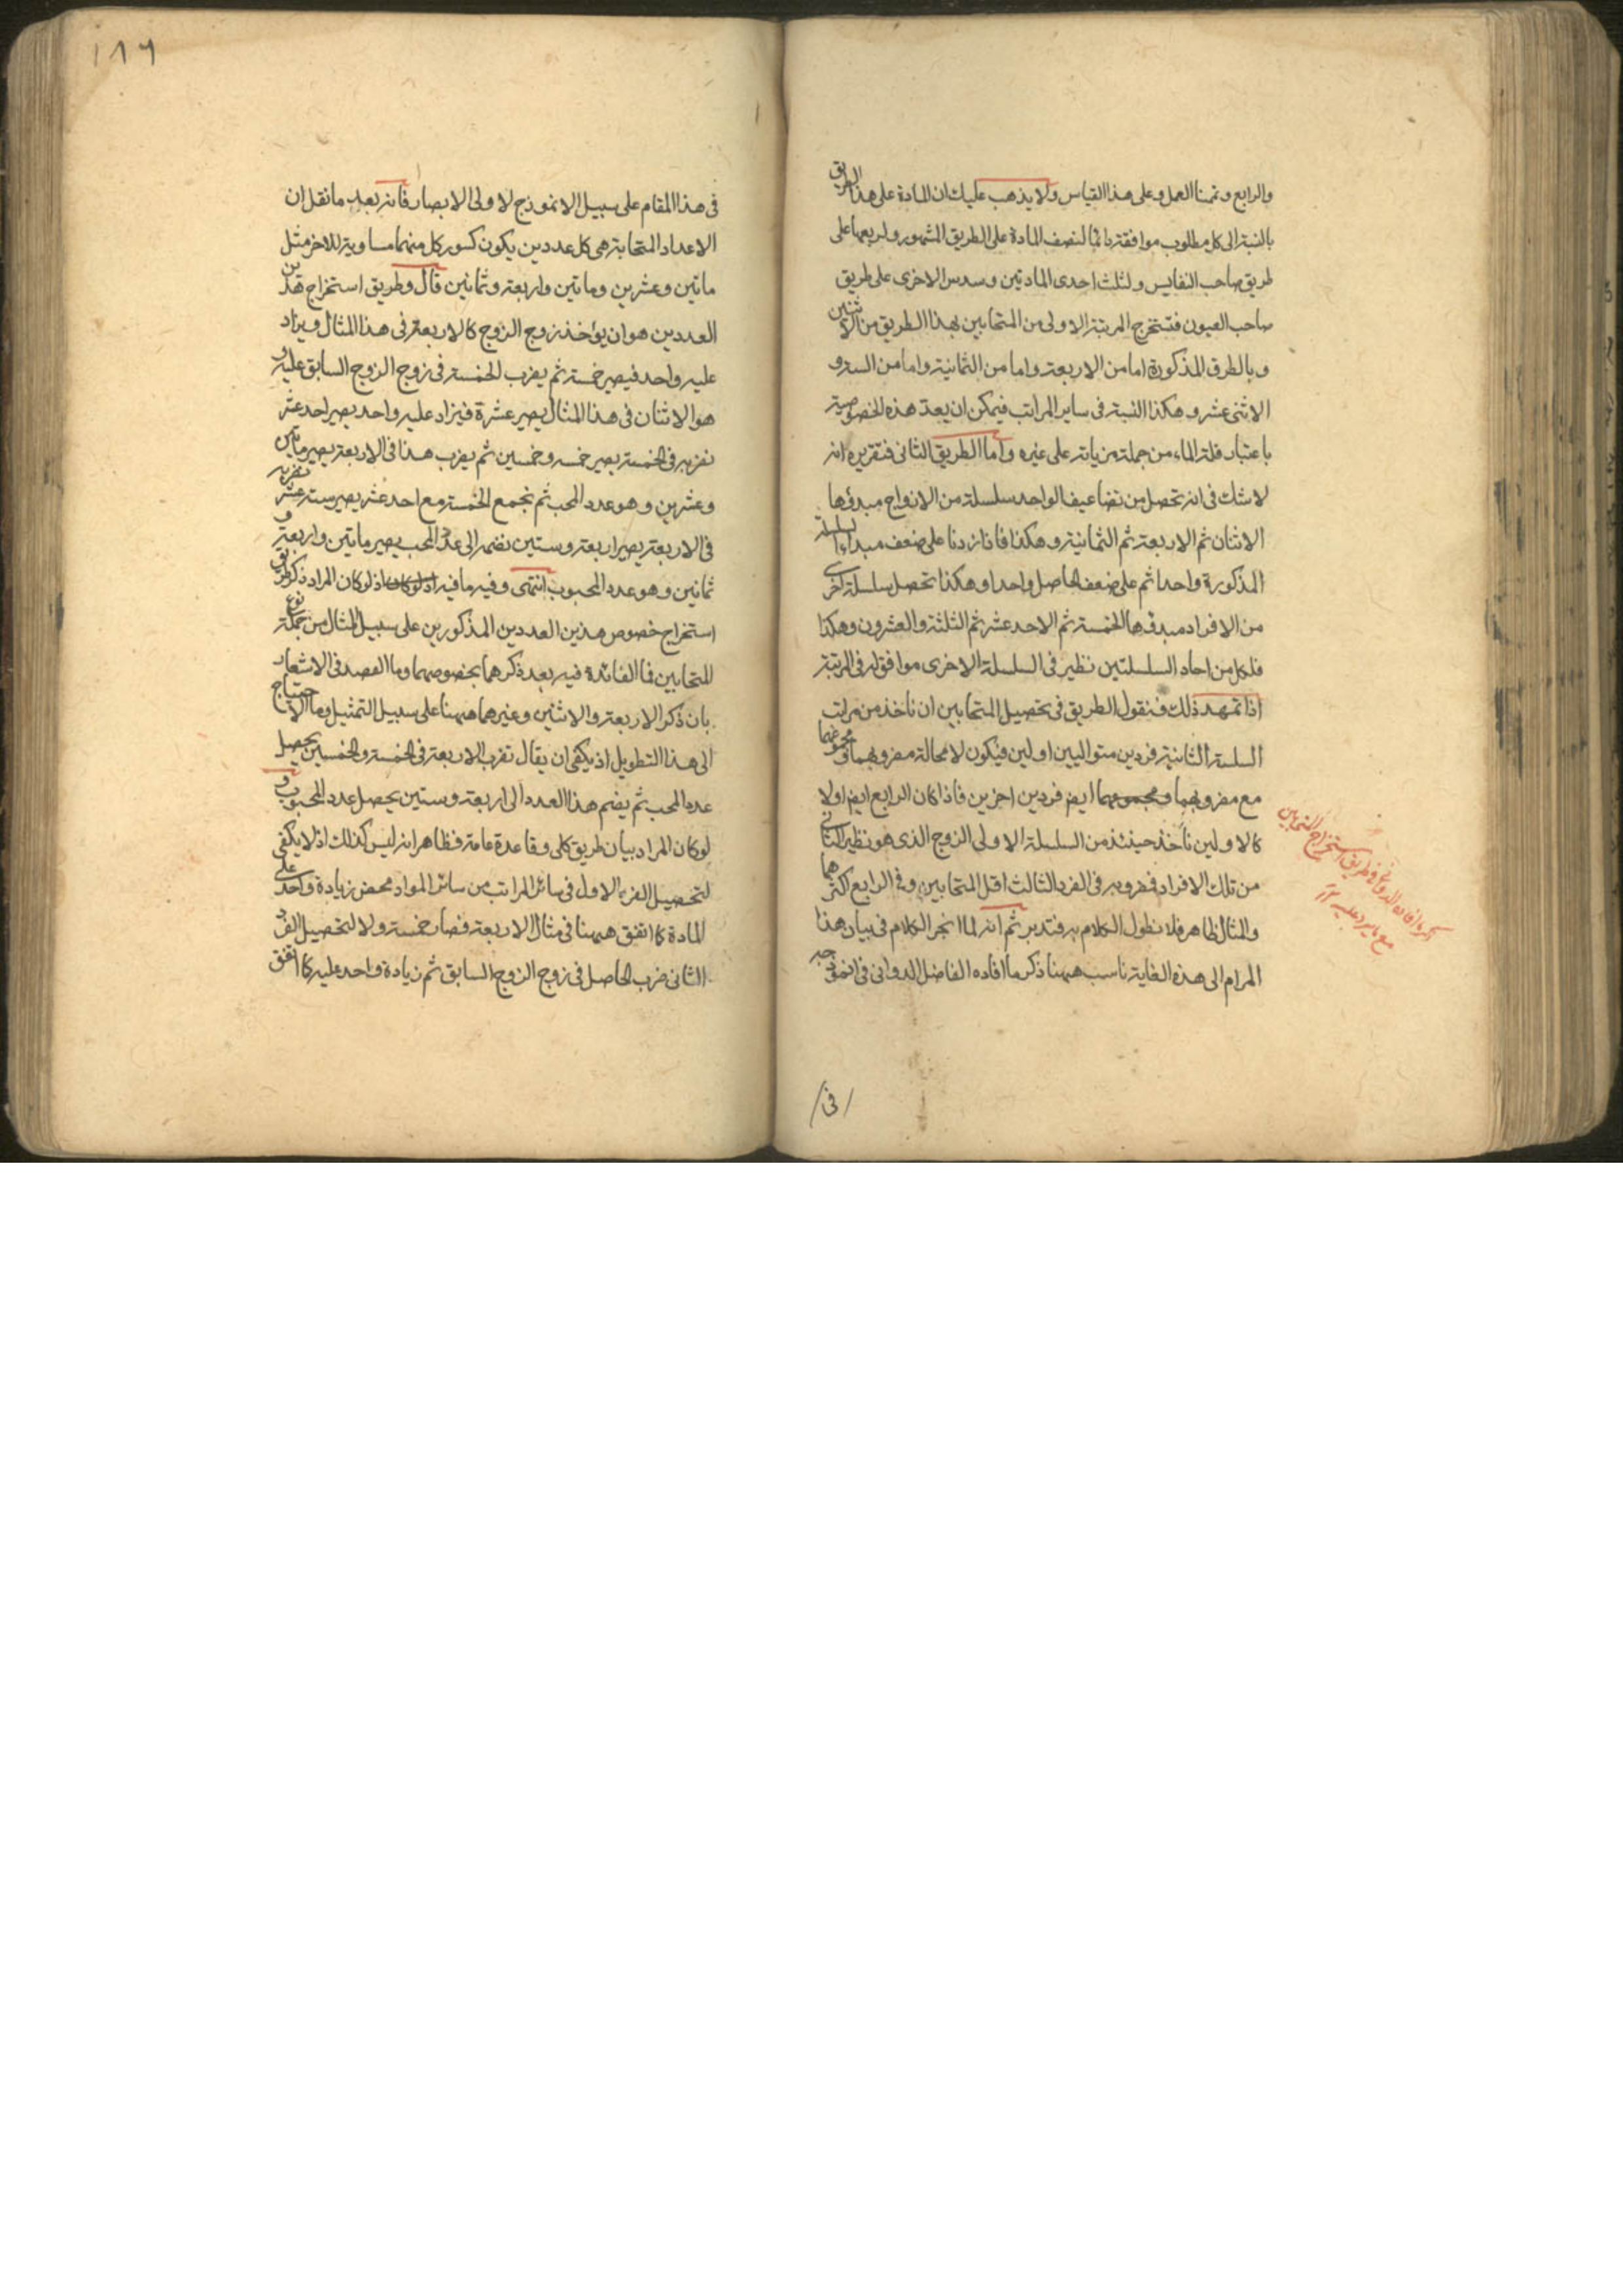 والرابع وتممنا العمل وعلى هذا القياس ولا يذهب عليك ان المادة على هذا الطريق
بالنسبة الى كل مطلوب موافقة دائما لنصف المادة على الطريق المشهور ولربعها على
طريق صاحب النفايس ولثلث احدى المادتين وسدس الاخرى على طريق
صاحب العيون فتستخرج المرتبة الاولى من المتحابين بهذا الطريق من الاثنين
وبالطرق المذكورة اما من الاربعة واما من الثمانية واما من الستة و
الاثنى عشر وهكذا النسبة فى ساير المراتب فيمكن ان يعد هذه الخصوصية
باعتبار قلة الماء من جملة مزياته على غيره واما الطريق الثانى فتقريره انه
لا شك فى انه تحصل من تضاعيف الواحد سلسلة من الازواج مبدؤها
الاثنان ثم الاربعة ثم الثمانية وهكذا فاذا زدنا على ضعف مبداء السلسلة
المذكورة واحدا ثم على ضعف الحاصل واحدا وهكذا تحصل سلسلة اخرى
من الافراد مبدؤها الخمسة ثم الاحد عشر ثم الثلثة والعشرون وهكذا
فلكل من احاد السلسلتين نظير فى السلسلة الاخرى موافق له فى المرتبة
اذا تمهد ذلك فنقول الطريق فى تحصيل المتحابين ان ناخذ من مراتب
السلسلة الثانية فردين متواليين اولين فيكون لا محالة مضروبهما ومجموعهما
مع مضروبهما ومجموعهما ايض فردين اخرين فاذا كان الرابع ايض اولا
كالاولين ناخذ حينئذ من السلسلة الاولى الزوج الذى هو نظير الثانى
من تلك الافراد فضروبه فى الفرد الثالث اقل المتحابين وفى الرابع اكثرهما
والمثال ظاهر فلا نطول الكلام به فتدبر ثم انه لما انجر الكلام فى بيان هذا
المرام الى هذه الغاية ناسب ههنا ذكر ما افاده الفاضل الدوانى فى انموذجه
ذكر ما افاده الدوانى فى طريق استخراج المتحابين
مع ما يرد عليه
فى
١٨٦
فى هذا المقام على سبيل الانموذج لاولى الابصار فانه بعد ما نقل ان
الاعداد المتحابة هى كل عددين يكون كسور كل منهما مساوية للاخر مثل
ماتين وعشرين وماتين واربعة وثمانين قال وطريق استخراج هذين
العددين هو ان يؤاخذ زوج الزوج كالاربعة فى هذا المثال ويزاد
عليه واحد فيصير خمسة ثم يضرب الخمسة فى زوج الزوج السابق عليه و
هو الاثنان فى هذا المثال يصير عشرة فيزاد عليه واحد يصير احد عشر
نضربه فى الخمسة يصير خمسه وخمسين ثم يضرب هذا فى الاربعة يصير ماتين
وعشرين وهو عدد المحب ثم نجمع الخمسة مع احد عشر يصير ستة عشر نضربه
فى الاربعة يصير اربعة وستين نضمه الى عدد المحب يصير ماتين واربعة و
ثمانين وهو عدد المحبوب انتهى وفيه ما فيه اذ لو كان اذ لو كان المراد ذكر طريق
استخراج خصوص هذين العددين المذكورين على سبيل المثال من جملة نوع
المتحابين فما الفائدة فيه بعد ذكرهما بخصوصهما وما القصد فى الاشعار
بان ذكر الاربعة والاثنين وغيرهما ههنا على سبيل التمثيل وما الاحتياج
الى هذا التطويل اذ يكفى ان يقال نضرب الاربعة فى الخمسة والخمسين يحصل
عدد المحب ثم يضم هذا العدد الى اربعة وستين يحصل عدد المحبوب و
لو كان المراد بيان طريق كلى وقاعدة عامة فظاهر انه ليس كذلك اذ لا يكفى
لتحصيل الفرد الاول فى سائر المراتب من سائر المواد محض زيادة واحد على
المادة كما اتفق ههنا فى مثال الاربعة فصار خمسة ولا لتحصيل الفرد
الثانى ضرب الحاصل فى زوج الزوج السابق ثم زيادة واحد عليه كما اتفق